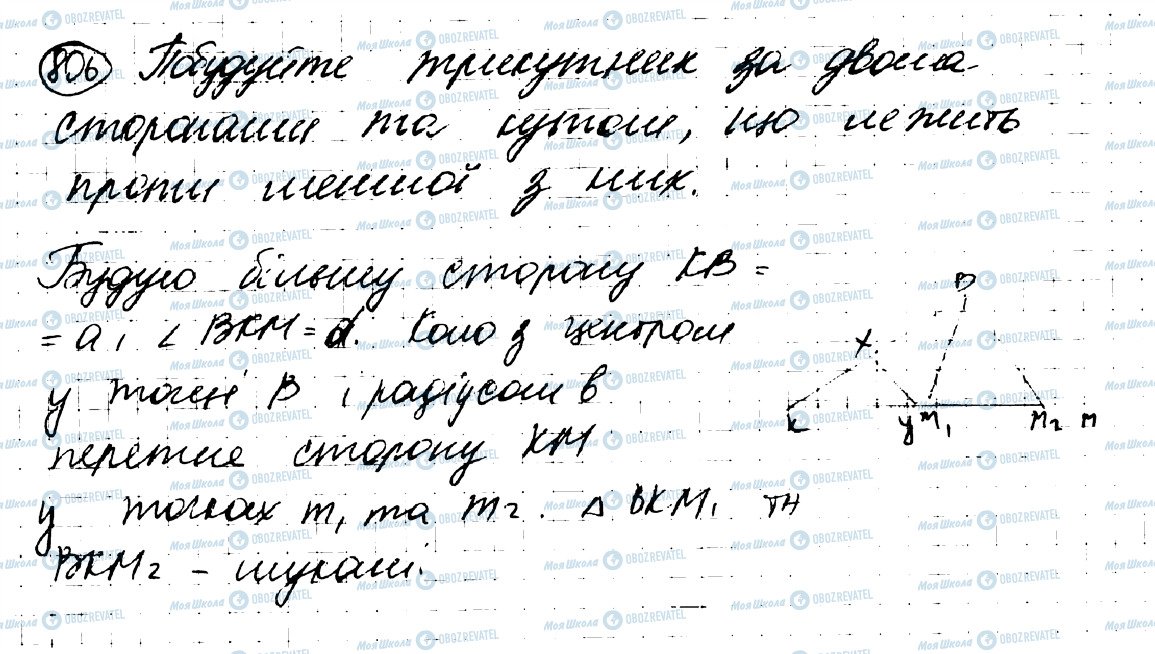 806 Побудуйте трикутник за двома
сторонами та кутом, що лежить
проти меншої з них.
Будую більшу сторону KB =
= a i ∠ BKM = α. Коло з центром
у точці B і радіусом b
перетне сторону KM
у точках m₁ та m₂. △ BKM₁ та
BKM₂ – шукані.
B
X
K y M₁ M₂ M
МояШкола OBOZREVATEL